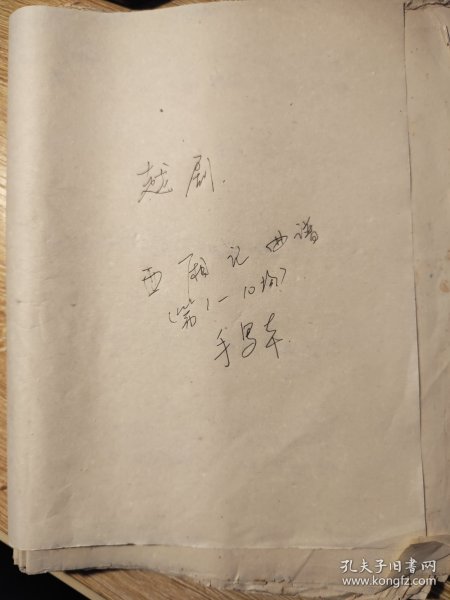 越剧.
西厢记曲谱
(第1-10场)
手写本.
孔夫子旧书网
www.kongfz.com